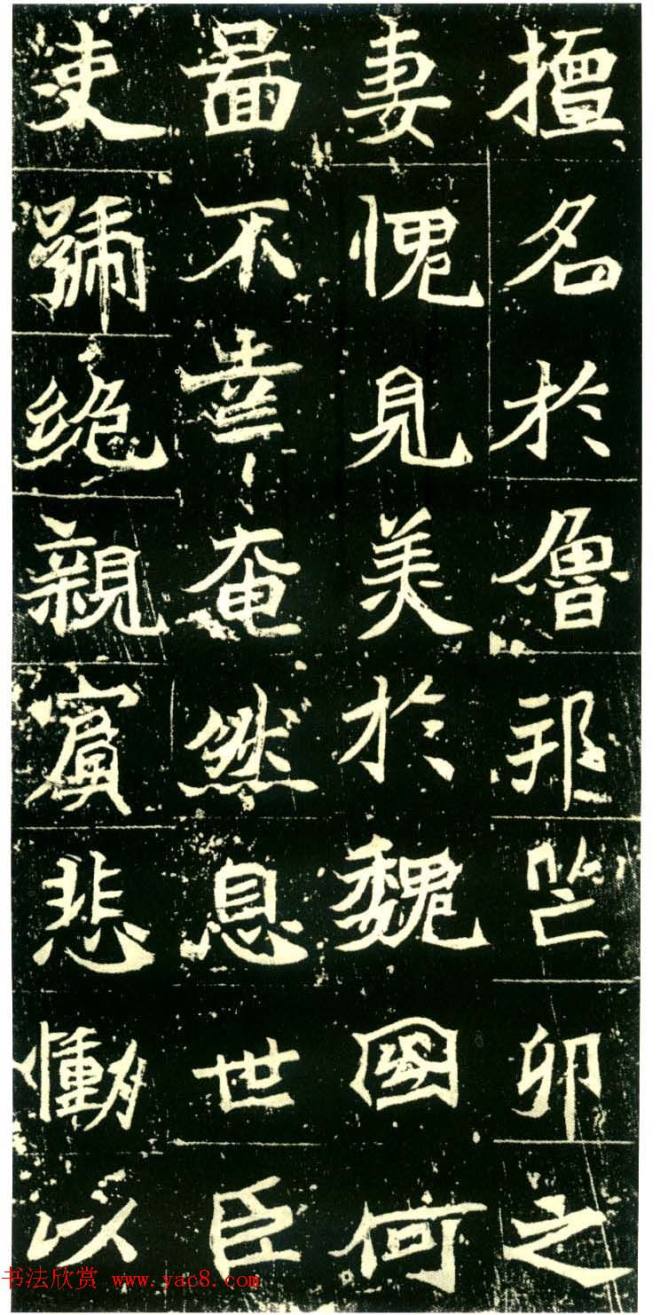 擅名於魯邦芒卯之
妻愧見美於魏國何
啚不幸奄然息世臣
吏號絶親賓悲慟以
书法欣赏 www.yac8.com